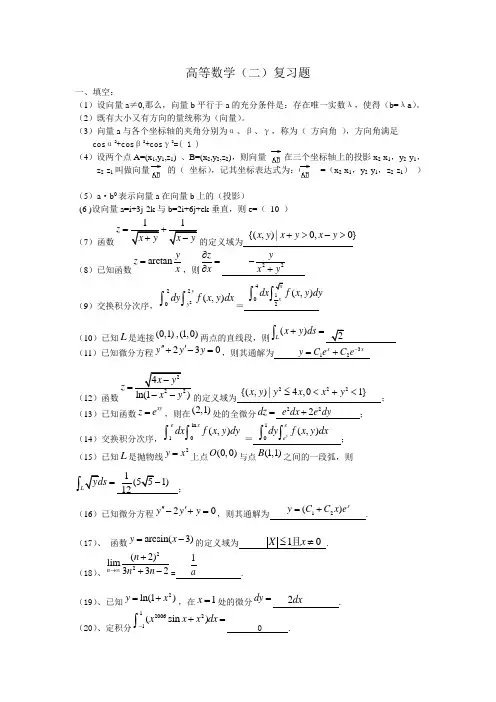 高等数学（二）复习题
一、填空：
（1）设向量a≠0,那么，向量b平行于a的充分条件是：存在唯一实数λ，使得（b=λa）。
（2）既有大小又有方向的量统称为（向量）。
（3）向量a与各个坐标轴的夹角分别为α、β、γ，称为（ 方向角 ），方向角满足
cosα²+cosβ²+cosγ²=( 1 )
（4）设两个点A=(x₁,y₁,z₁) 、B=(x₂,y₂,z₂)，则向量 AB 在三个坐标轴上的投影x₂-x₁，y₂-y₁，
z₂-z₁叫做向量 AB 的（ 坐标），记其坐标表达式为：（ AB =（x₂-x₁，y₂-y₁，z₂-z₁） ）
（5）a·b⁰表示向量a在向量b上的（投影）
(6 )设向量a=i+3j-2k与b=2i+6j+ck垂直，则c=（ 10 ）
（7）函数 z = 1/√(x+y) + 1/√(x−y) 的定义域为 {(x, y) | x + y > 0, x − y > 0}
（8）已知函数 z = arctan y/x ，则 ∂z/∂x = − y/(x² + y²)
（9）交换积分次序， ∫₀² dy ∫_{y²}^{2y} f(x, y)dx ＝ ∫₀⁴ dx ∫_{½x}^{√x} f(x, y)dy
（10）已知 L 是连接 (0,1) , (1,0) 两点的直线段，则 ∫_L (x + y)ds = √2
（11）已知微分方程 y″ + 2y′ − 3y = 0 ，则其通解为 y = C₁eˣ + C₂e⁻³ˣ
（12）函数 z = √(4x − y²) / ln(1 − x² − y²) 的定义域为 {(x, y) | y² ≤ 4x, 0 < x² + y² < 1} ；
（13）已知函数 z = e^{xy} ，则在 (2,1) 处的全微分 dz = e²dx + 2e²dy ；
（14）交换积分次序， ∫₁ᵉ dx ∫₀^{ln x} f(x, y)dy ＝ ∫₀¹ dy ∫_{e^y}^{e} f(x, y)dx ；
（15）已知 L 是抛物线 y = x² 上点 O(0,0) 与点 B(1,1) 之间的一段弧，则
∫_L √y ds = 1/12 (5√5 − 1) ；
（16）已知微分方程 y″ − 2y′ + y = 0 ，则其通解为 y = (C₁ + C₂x)eˣ .
（17）、 函数 y = arcsin(x − 3) 的定义域为 X ≤ 1且x ≠ 0 .
（18）、 lim_{n→∞} (n + 2)² / (3n² + 3n − 2) = 1/a .
（19）、已知 y = ln(1 + x²) ，在 x = 1 处的微分 dy = 2dx .
（20）、定积分 ∫₋₁¹ (x²⁰⁰⁶ sin x + x²)dx = 0 .